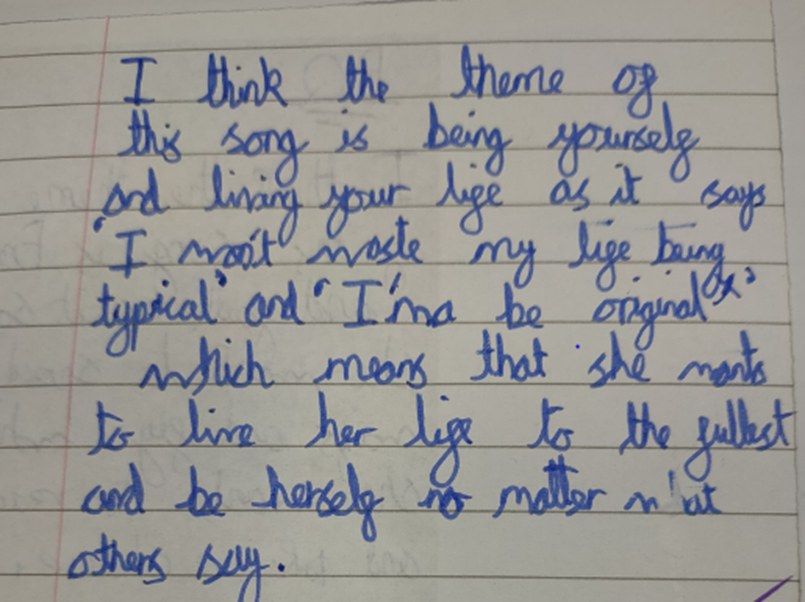 I think the theme of
this song is being yourself
and living your life as it says
'I won't waste my life being
typical' and 'I'ma be original'
which means that she wants
to live her life to the fullest
and be herself no matter what
others say.